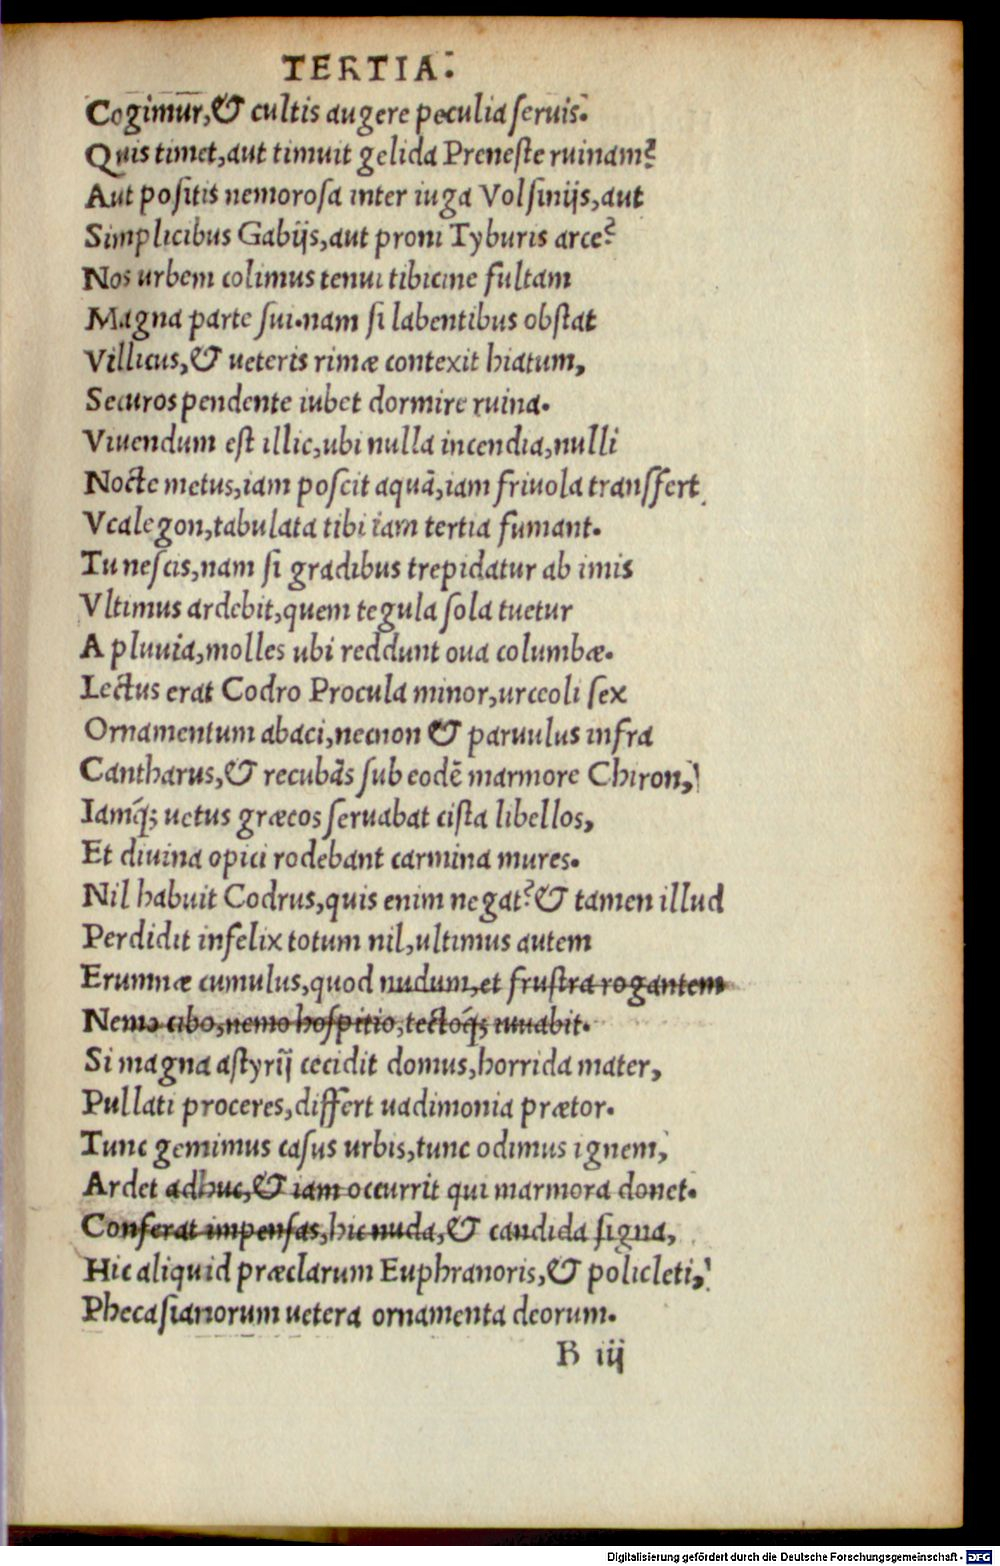 TERTIA.
Cogimur,& cultis augere peculia seruis.
Quis timet,aut timuit gelida Preneste ruinam?
Aut positis nemorosa inter iuga Volsinijs,aut
Simplicibus Gabijs,aut proni Tyburis arce?
Nos urbem colimus tenui tibicine fultam
Magna parte sui.nam si labentibus obstat
Villicus,& ueteris rimæ contexit hiatum,
Securos pendente iubet dormire ruina.
Viuendum est illic,ubi nulla incendia,nulli
Nocte metus,iam poscit aquã,iam friuola transfert
Vcalegon,tabulata tibi iam tertia fumant.
Tu nescis,nam si gradibus trepidatur ab imis
Vltimus ardebit,quem tegula sola tuetur
A pluuia,molles ubi reddunt oua columbæ.
Lectus erat Codro Procula minor,urceoli sex
Ornamentum abaci,necnon & paruulus infra
Cantharus,& recubãs sub eodẽ marmore Chiron,
Iamq́; uetus græcos seruabat cista libellos,
Et diuina opici rodebant carmina mures.
Nil habuit Codrus,quis enim negat?& tamen illud
Perdidit infelix totum nil,ultimus autem
Erumnæ cumulus,quod nudum,et frustra rogantem
Nemo cibo,nemo hospitio,tectoq́; iuuabit.
Si magna astyrij cecidit domus,horrida mater,
Pullati proceres,differt uadimonia prætor.
Tunc gemimus casus urbis,tunc odimus ignem,
Ardet adhuc,& iam occurrit qui marmora donet.
Conferat impensas,hic nuda,& candida signa,
Hic aliquid præclarum Euphranoris,& policleti,
Phecasianorum uetera ornamenta deorum.
B iij
Digitalisierung gefördert durch die Deutsche Forschungsgemeinschaft - DFG